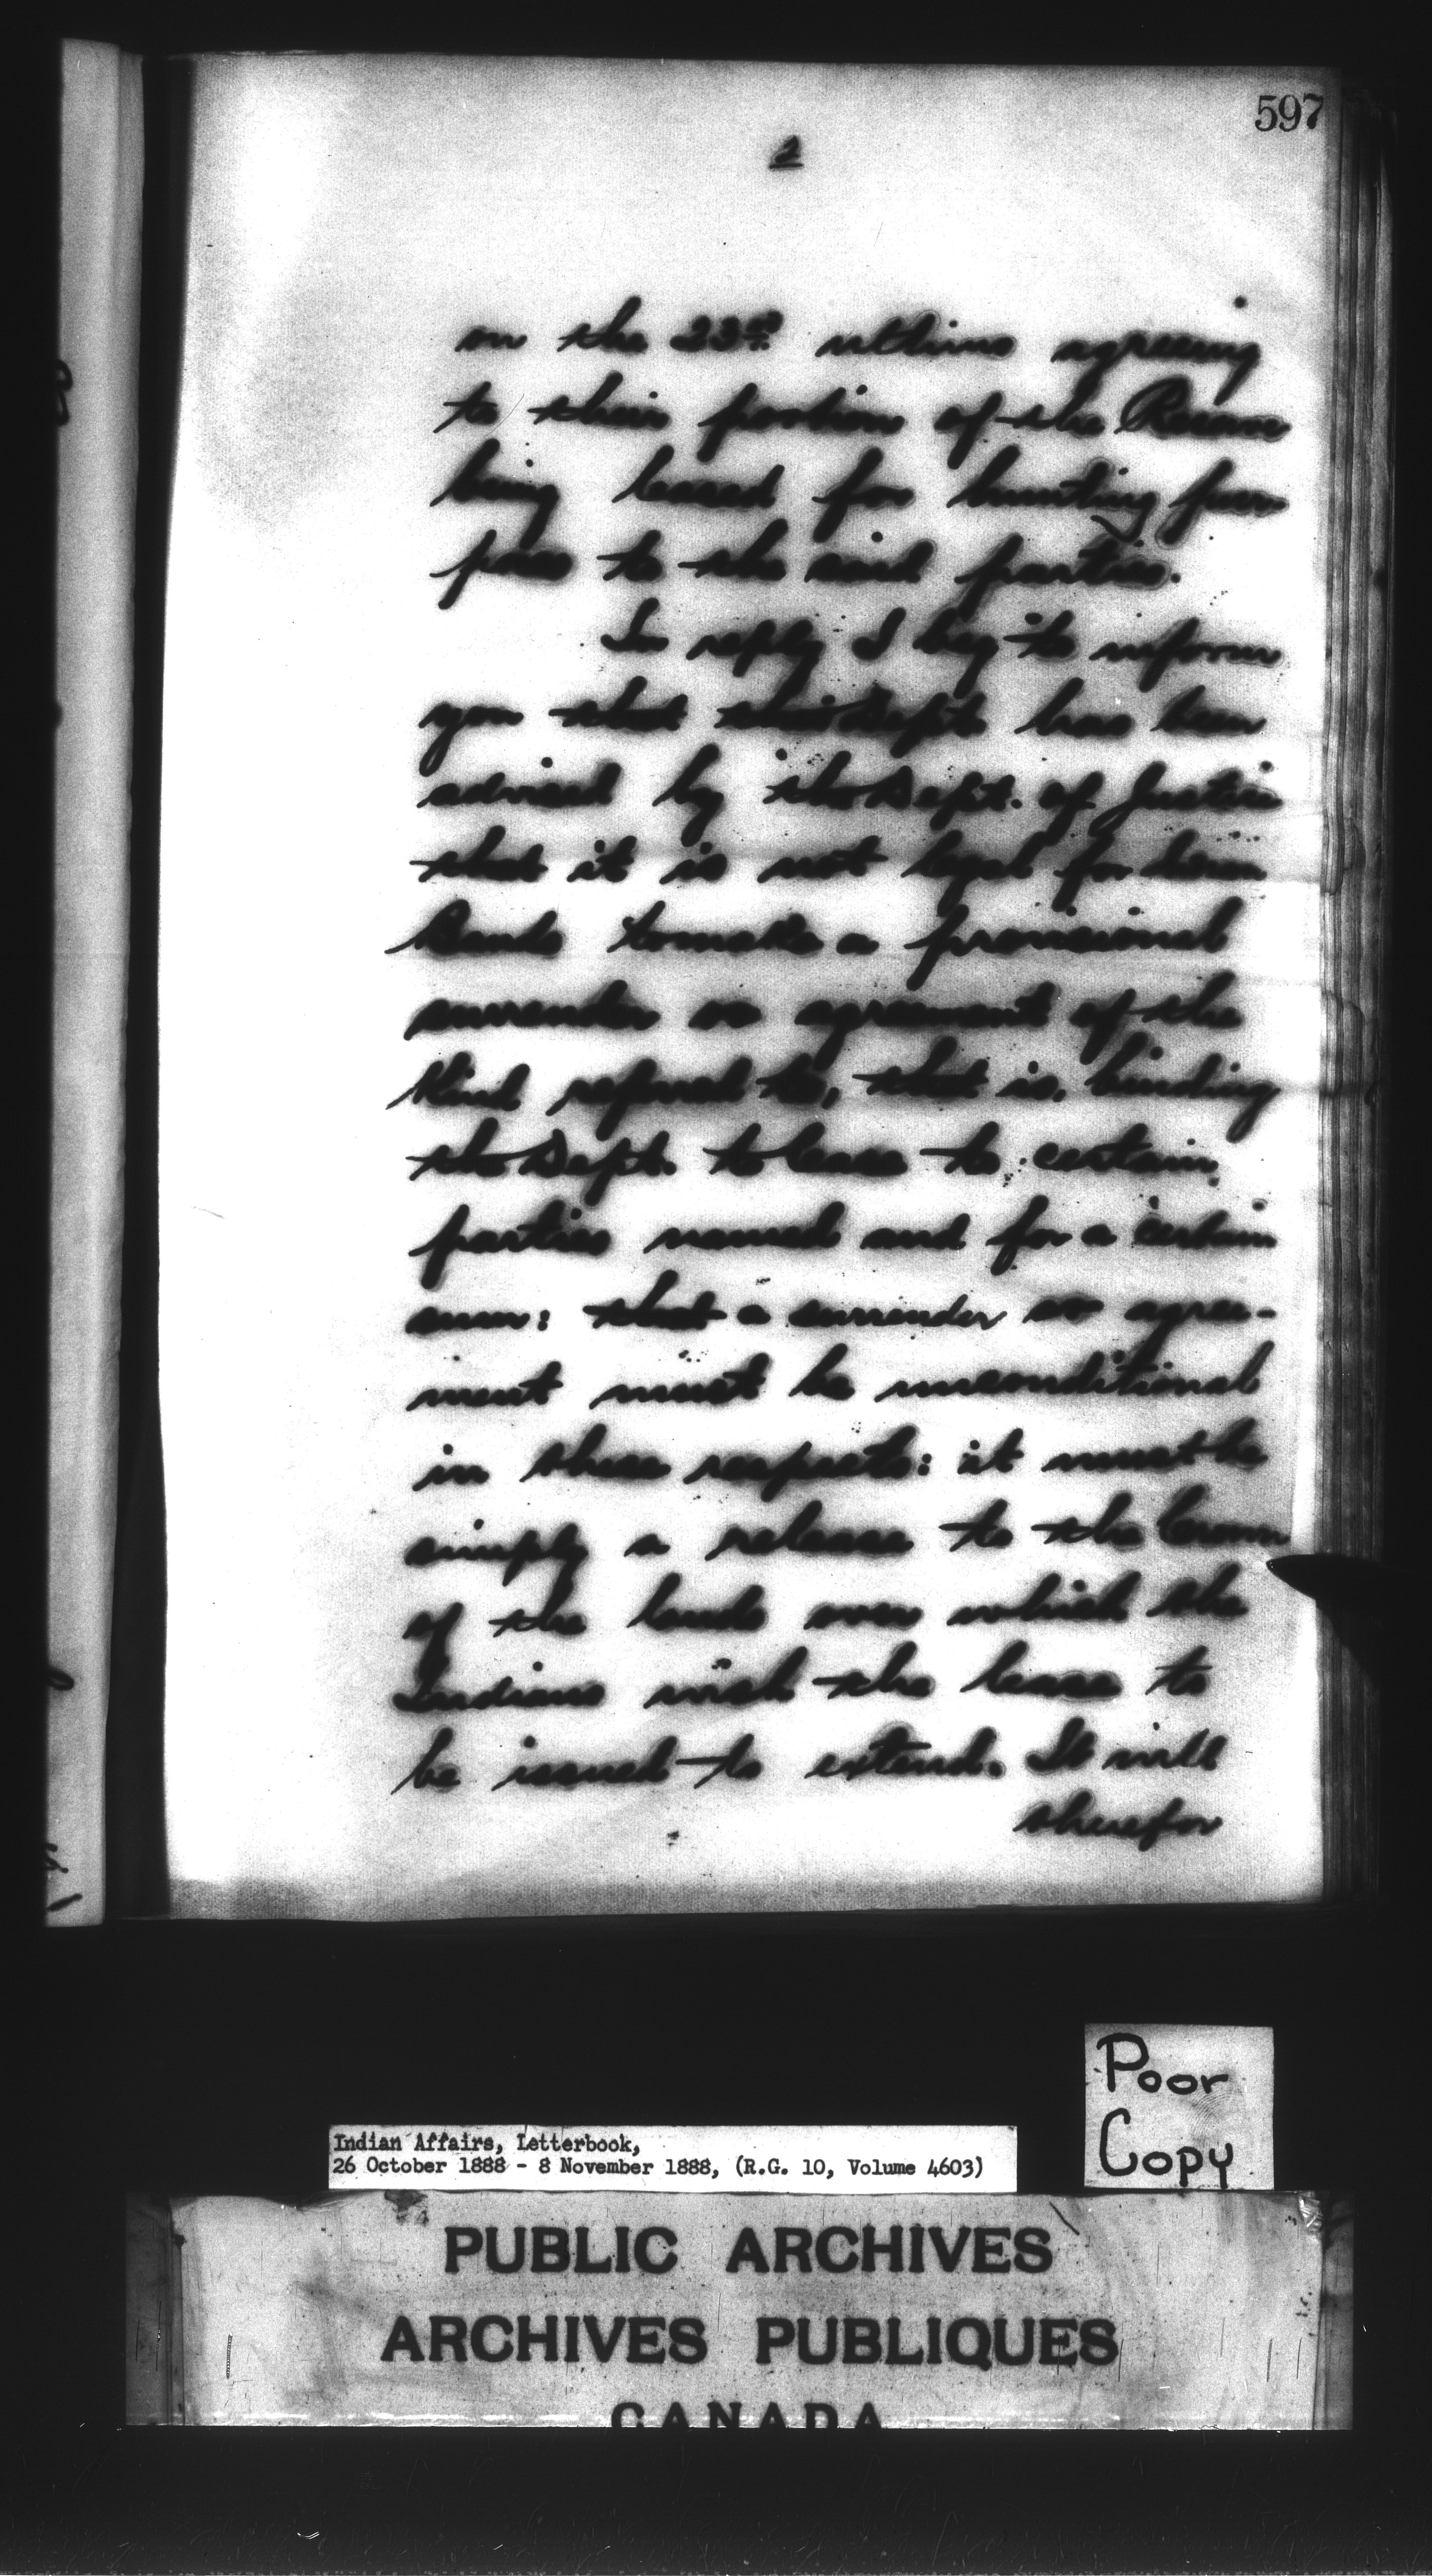 597
2
on the 23rd ultimo agreeing
to their portion of the Reserve
being leased for hunting pur
poses to the said parties.
In reply I beg to inform
you that this Dept. has been
advised by the Dept. of Justice
that it is not legal for
Bands to make a provisional
surrender or agreement of the
kind referred to, that is, binding
the Dept. to lease to certain
parties named and for a certain
sum: that a surrender or agree-
ment must be unconditional
in these respects: it must be
simply a release to the Crown
of the lands over which the
Indians wish the lease to
be issued to extend. It will
therefor
Poor
Copy
Indian Affairs, Letterbook,
26 October 1888 - 8 November 1888, (R.G. 10, Volume 4603)
PUBLIC ARCHIVES
ARCHIVES PUBLIQUES
CANADA